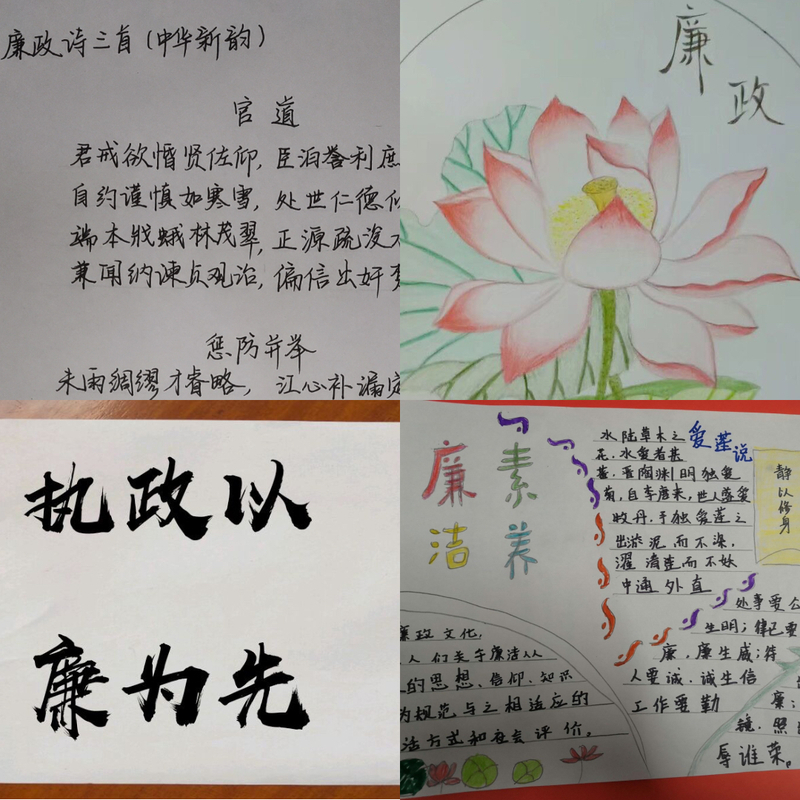 廉政诗三首（中华新韵）
官道
君戒欲惛贤佐仰，臣泊誉利庶
自约谨慎如寒雪，处世仁德
端本戕蛾林茂翠，正源疏浚
兼闻纳谏贞观治，偏信出奸
惩防并举
未雨绸缪才睿略，江心补漏
廉
政
执政以
廉为先
廉 素
洁 养
爱莲说
水陆草木之
花，水爱者甚
蕃，晋陶渊明独爱
菊，自李唐来，世人爱
牧丹，予独爱莲之
出淤泥而不染，
濯清涟而不妖
中通外直
静以修身
处事要公
生明；律己要
廉，廉生威；待
人要诚，诚生信
工作要勤
廉；
镜，照
辱谁荣。
廉政文化，
人们关于廉洁从
的思想、信仰、知识
为规范与之相适应的
活方式和社会评价。